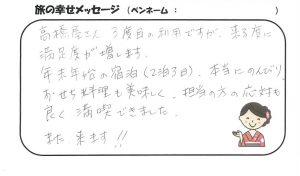 旅の幸せメッセージ（ペンネーム：　　　　　）
高橋屋さん 3度目の利用ですが、来る度に
満足度が増します。
年末年始の宿泊（2泊3日）、本当にのんびり、
おせち料理も美味しく、担当の方の応対も
良く満喫できました。
また来ます!!